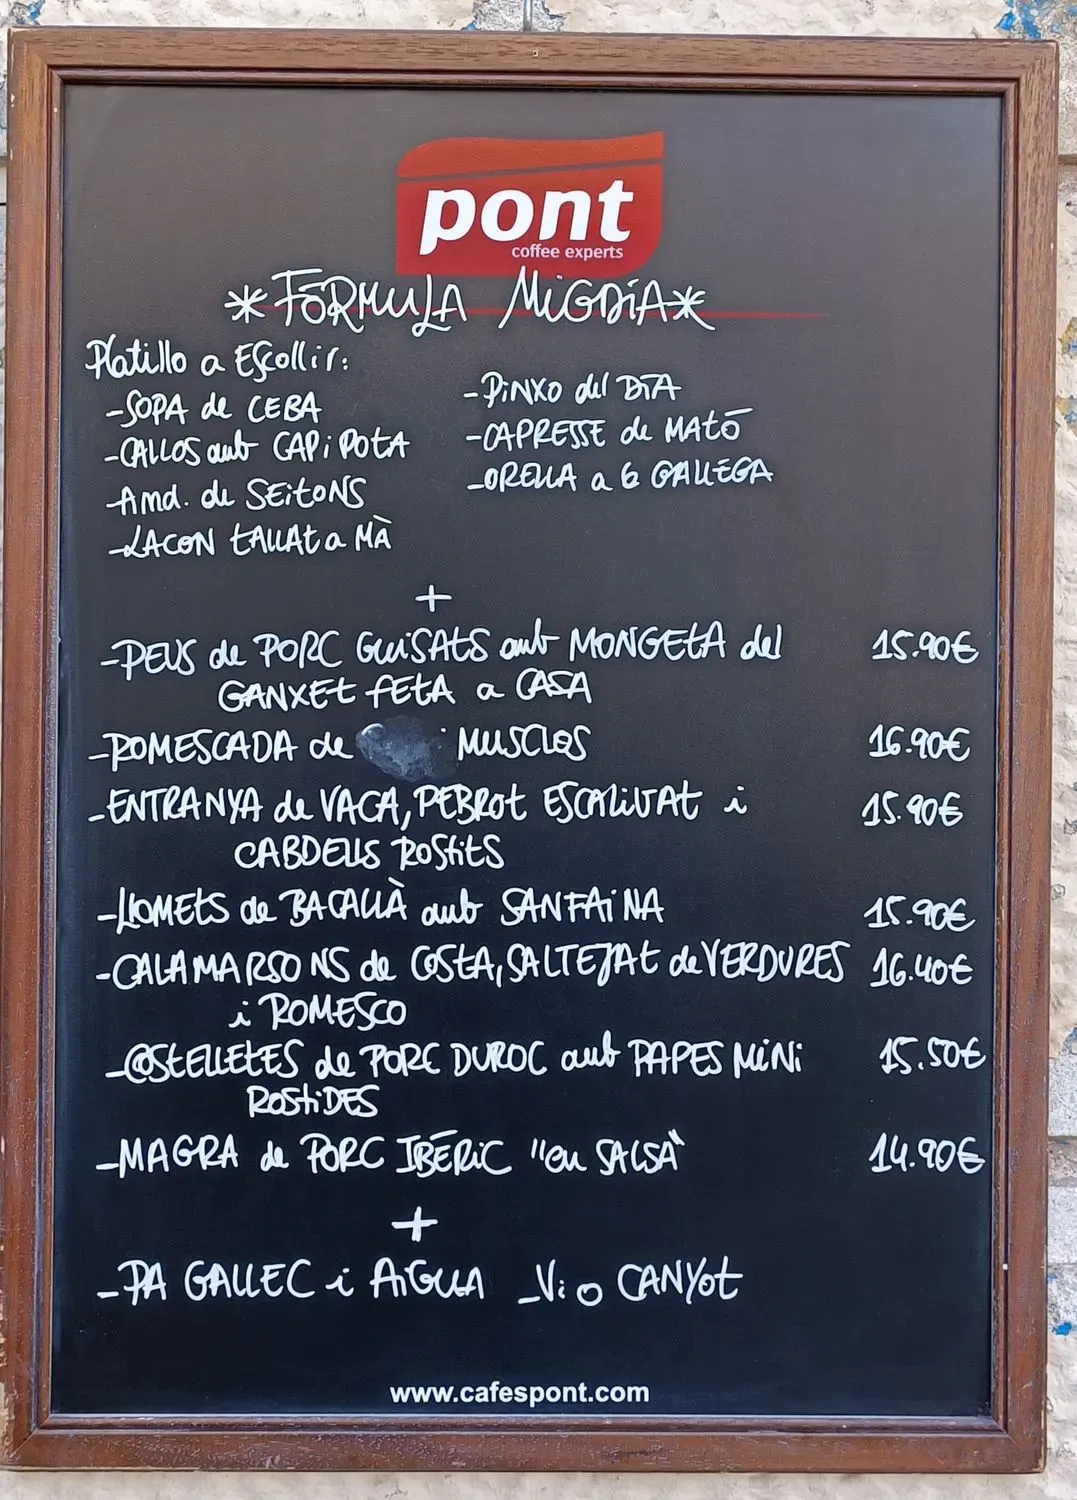 pont
coffee experts
*FÓRMULA MIGDIA*
Platillo a Escollir:
-SOPA de CEBA
-CALLOS amb CAP i POTA
-Amd. de SEITONS
-LACON tALLAt a MÀ
-PiNXO del DIA
-CAPRESSE de MATÓ
-ORELLA a 6 GALLEGA
+
-PEUS de PORC GUISATS amb MONGETA del 15.90€
GANXET FETA a CASA
-ROMESCADA de MUSCLOS 16.90€
-ENTRANYA de VACA, PEBROT ESCALIVAT i 15.90€
CABDELLS ROSTITS
-LLOMETS de BACALLÀ amb SANFAiNA 15.90€
-CALAMARSONS de COSTA, SALTEJAT de VERDURES 16.40€
i ROMESCO
-COSTELLETES de PORC DUROC amb PAPES MiNi 15.50€
ROSTIDES
-MAGRA de PORC IBÉRIC "en SALSA" 14.90€
+
-PA GALLEC i AIGUA -Vi o CANYOT
www.cafespont.com